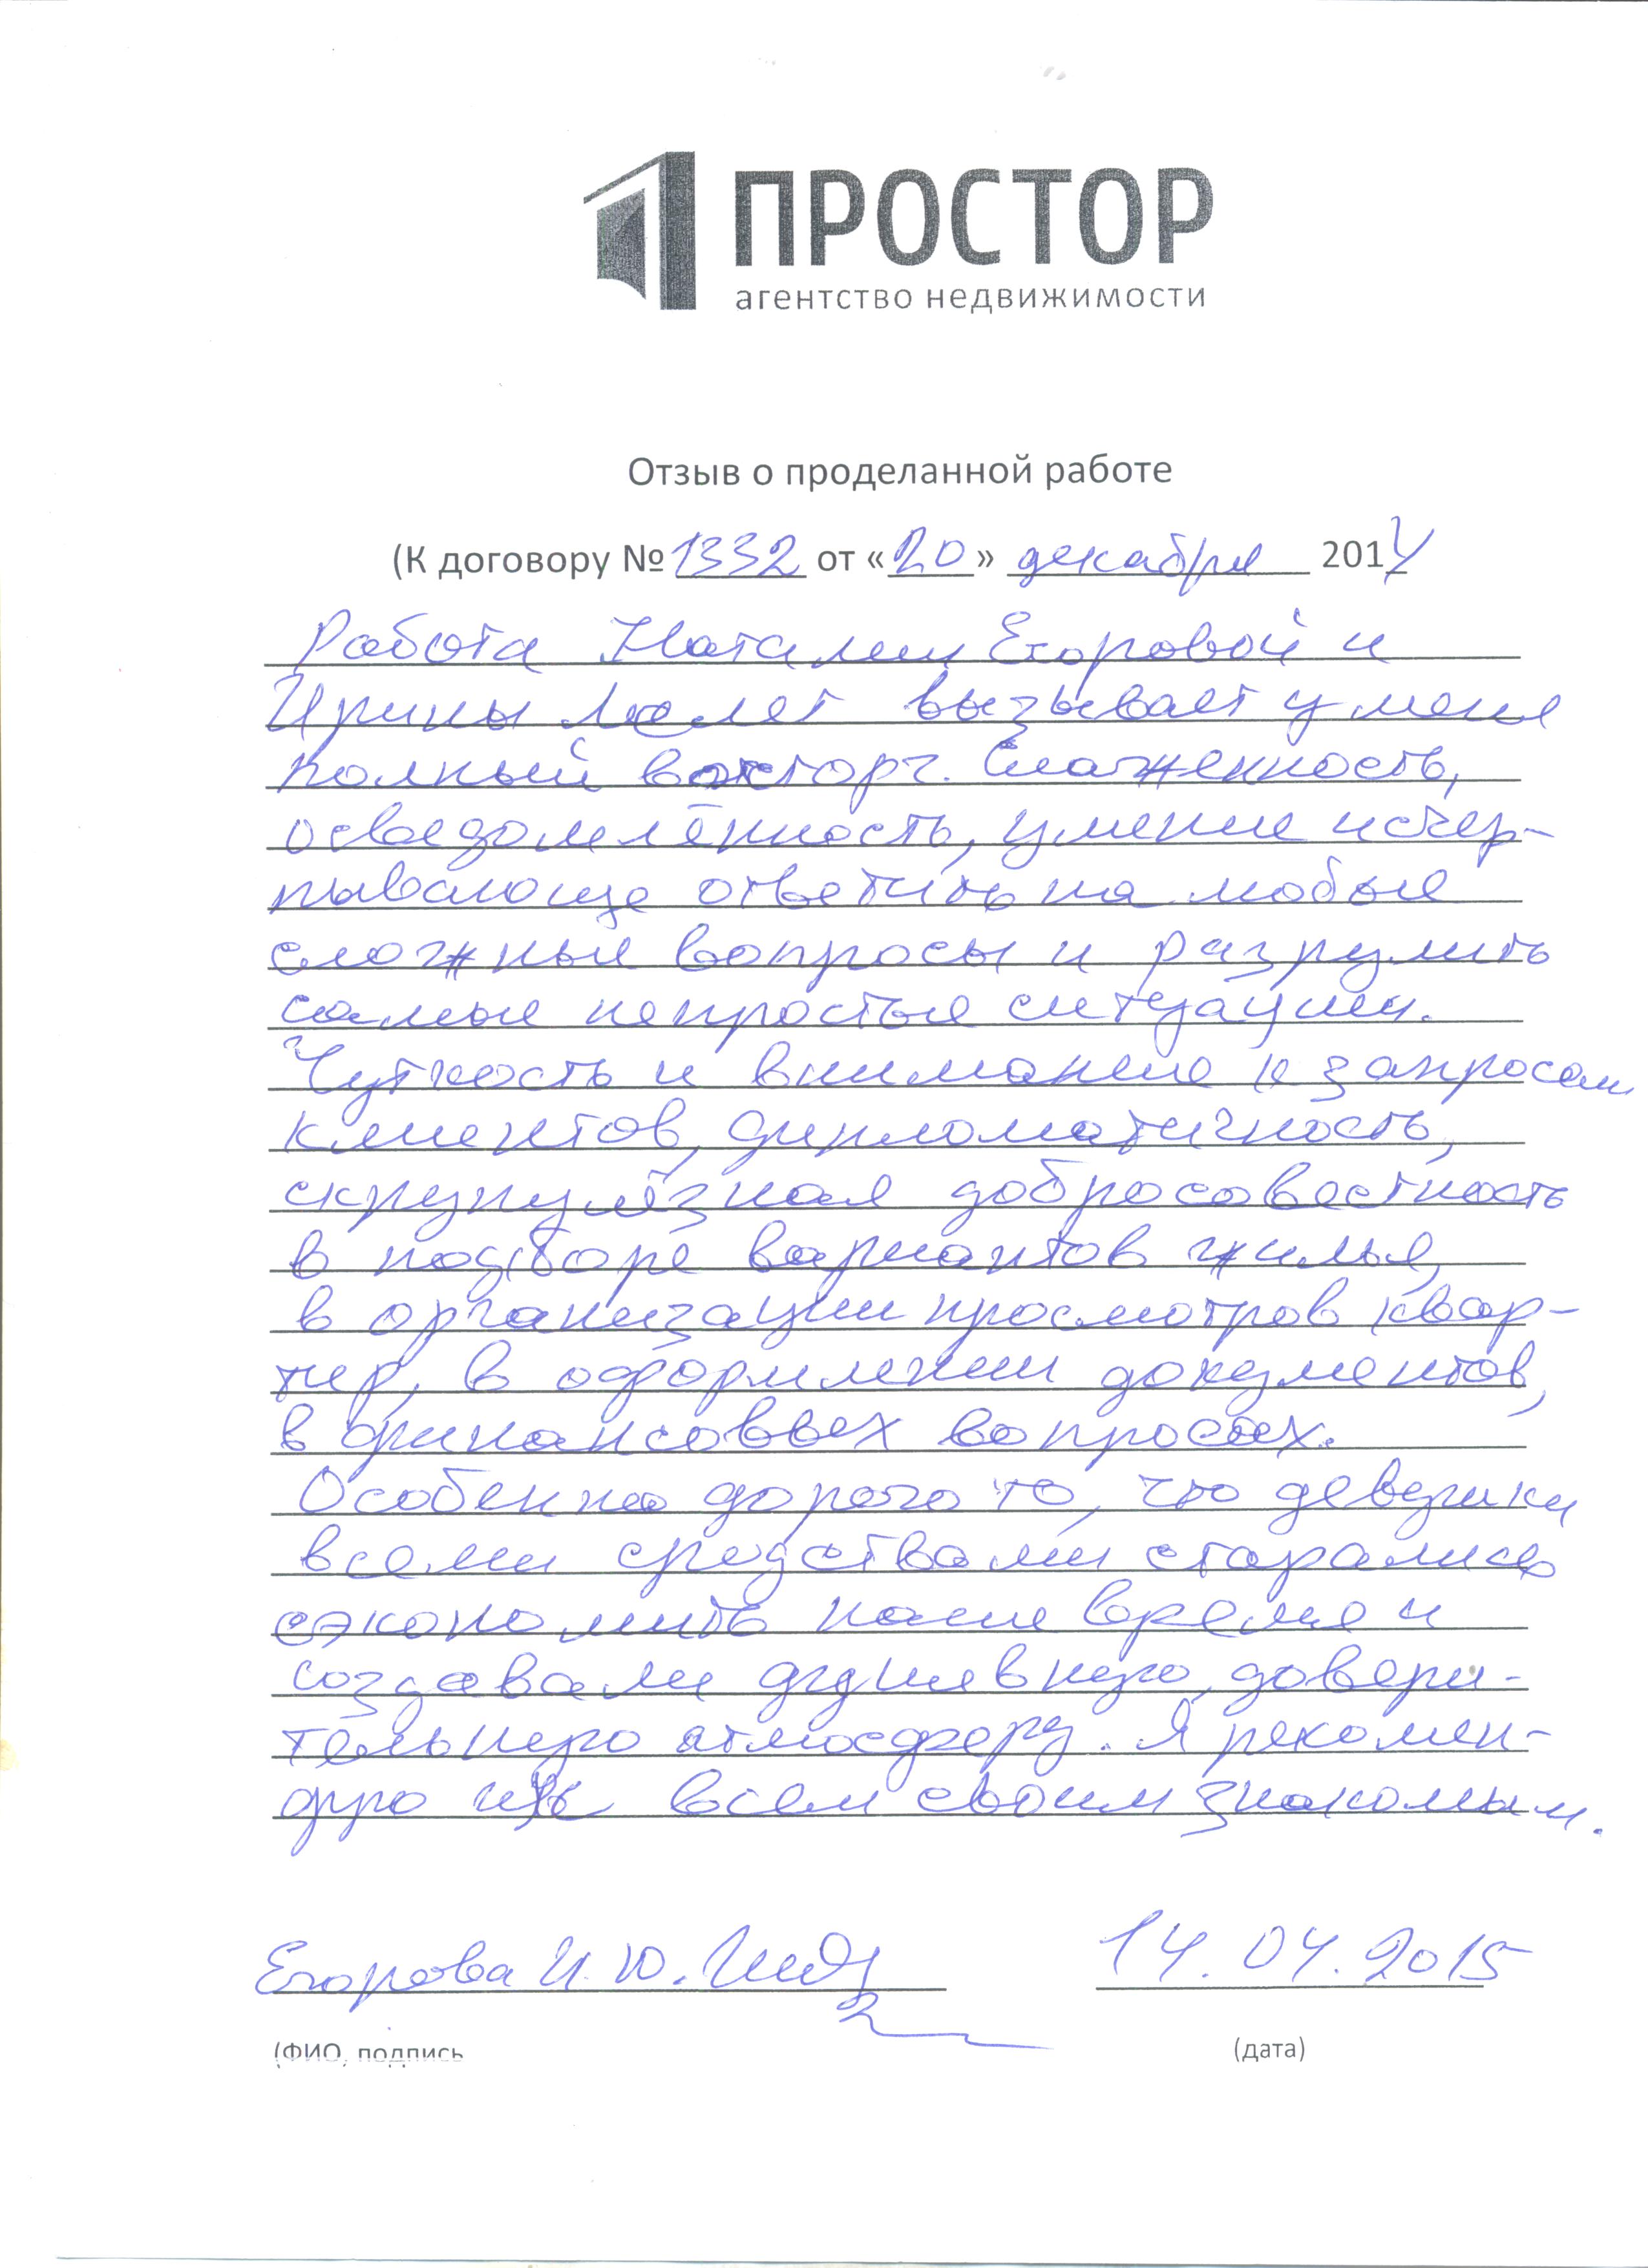 ПРОСТОР
агентство недвижимости
Отзыв о проделанной работе
(К договору № 1332 от «20» декабря 2014
Работа Наталии Егоровой и
Ирины вызывает у меня
полный восторг. Слаженность,
осведомлённость, умение исчер-
пывающе ответить на любые
сложные вопросы и разрулить
самые непростые ситуации.
Чуткость и внимание к запросам
клиентов, дипломатичность,
скрупулёзная добросовестность
в подборе вариантов жилья,
в организации просмотров квар-
тир, в оформлении документов,
в финансовых вопросах.
Особенно дорого то, что девушки
всеми средствами старались
сэкономить наше время и
создавали душевную, довери-
тельную атмосферу. Я рекомен-
дую их всем своим знакомым.
Егорова И. Ю. 14.04.2015
(ФИО, подпись (дата)